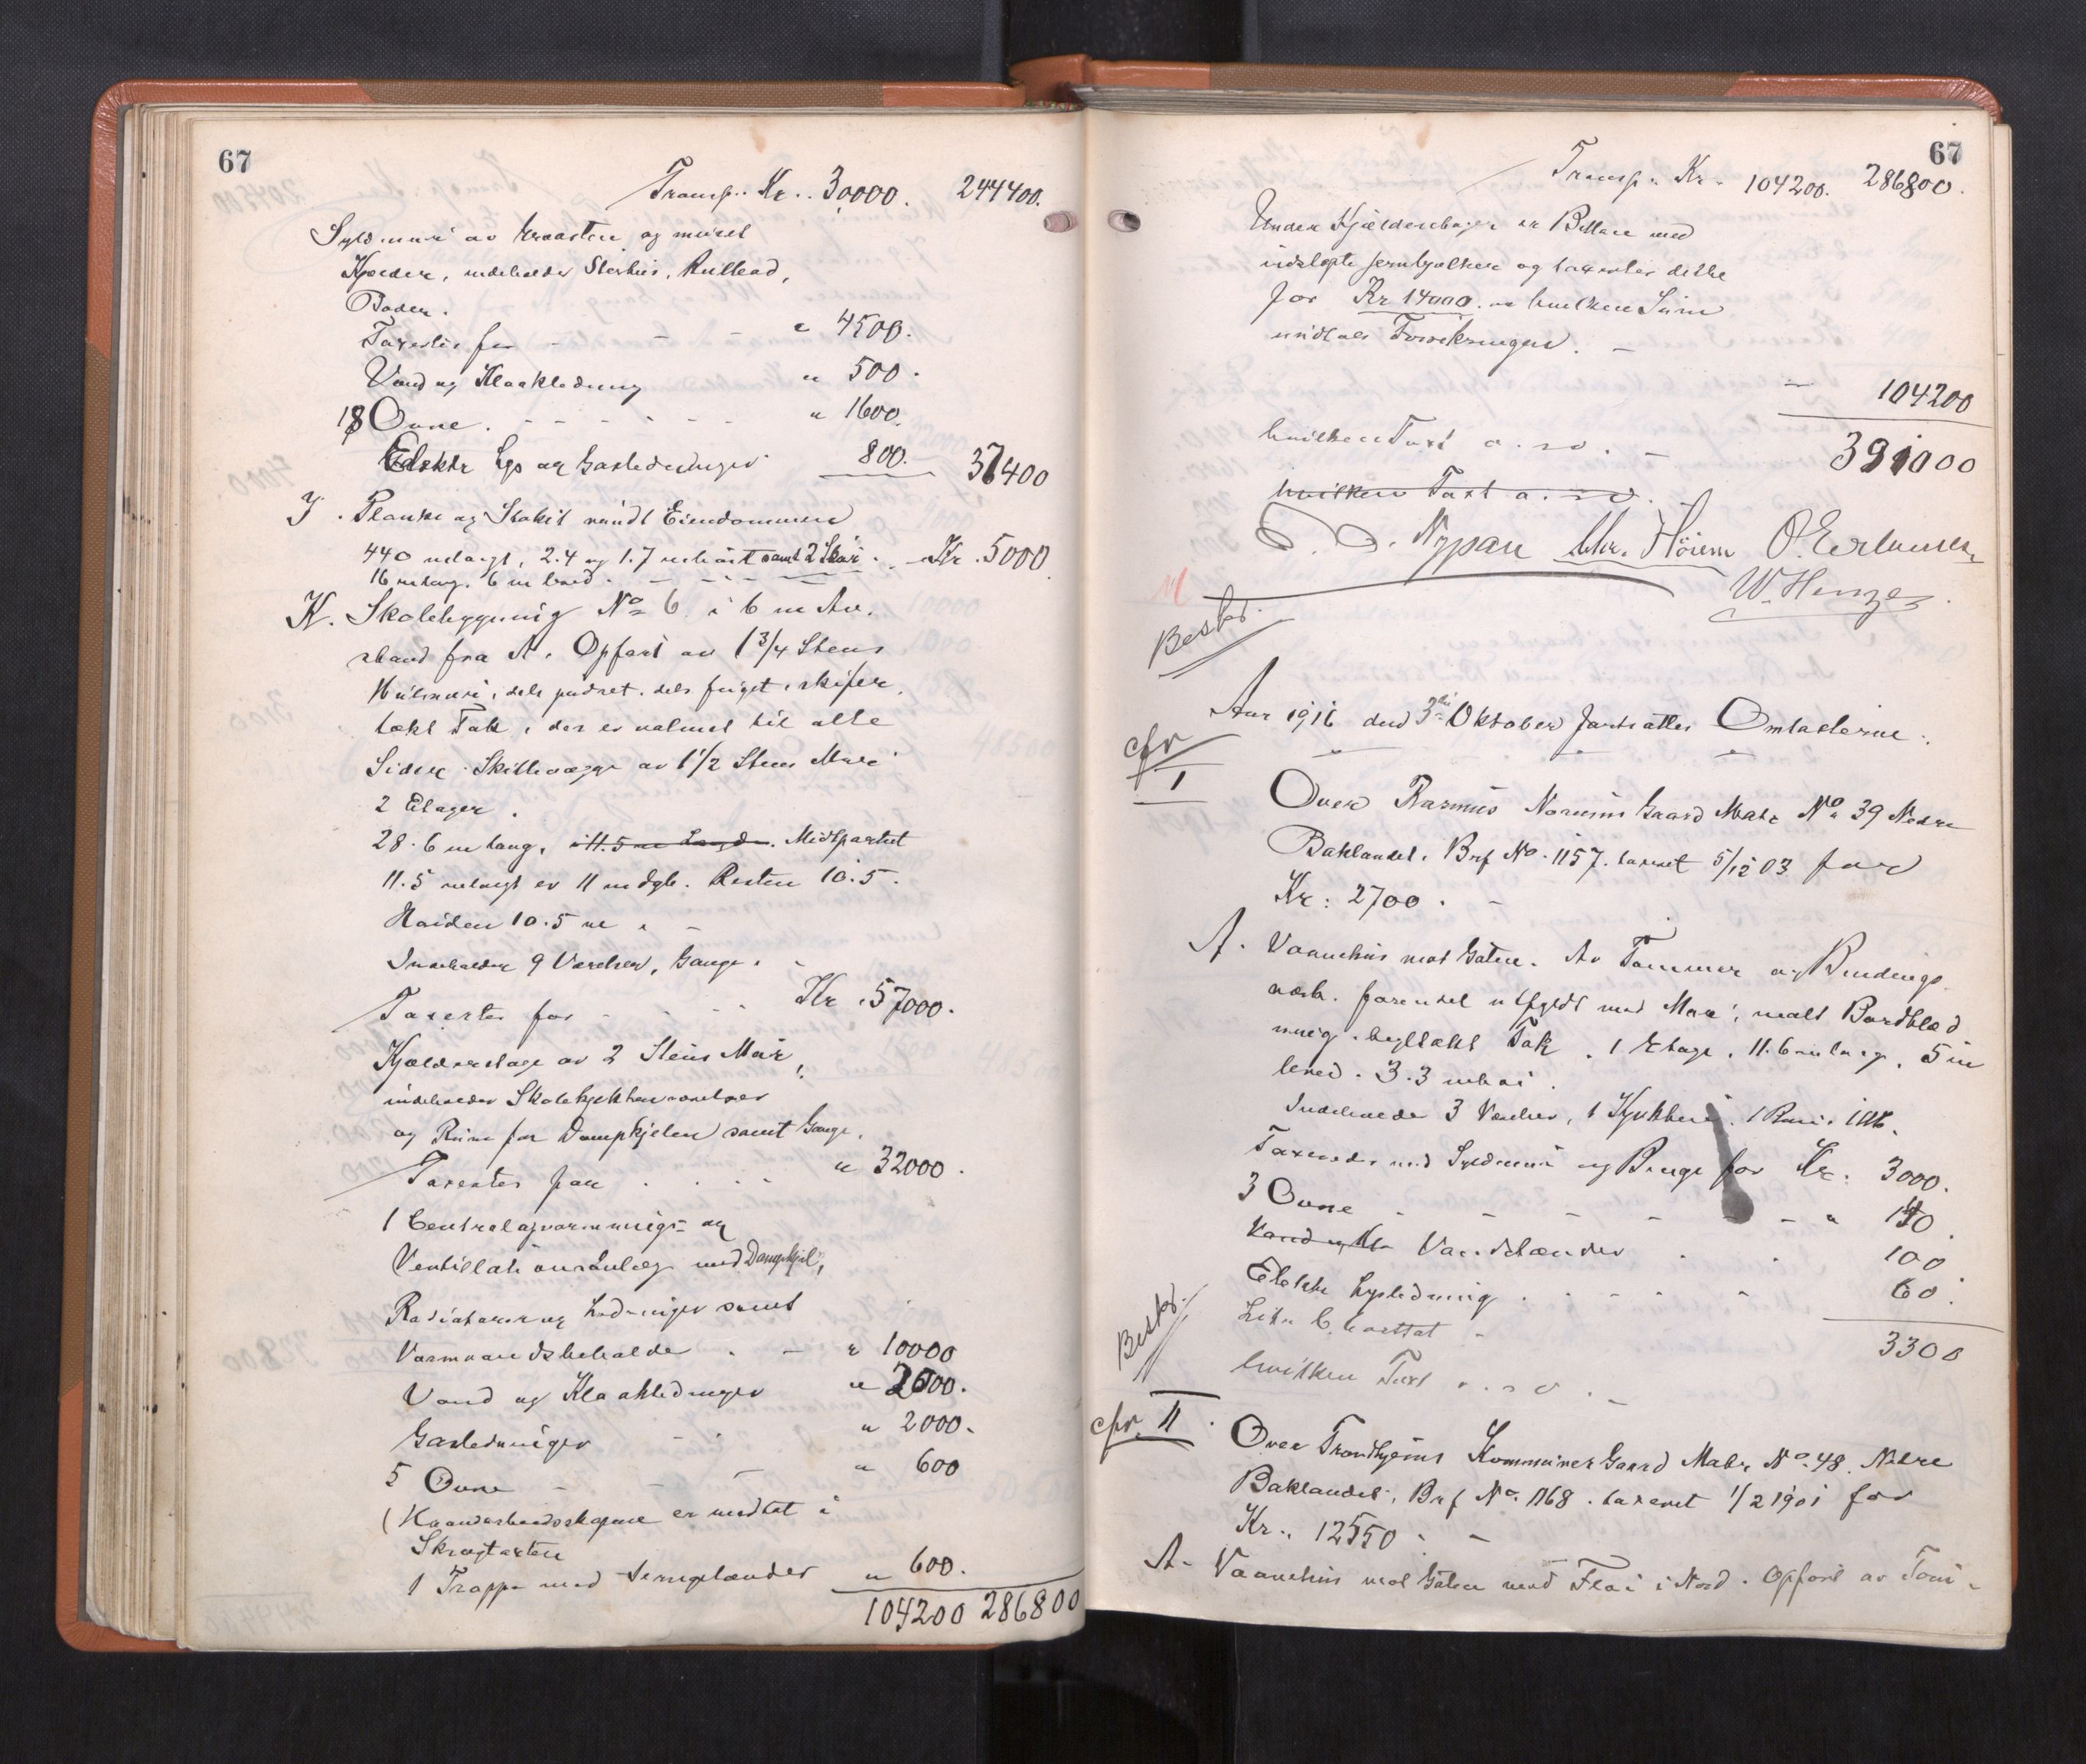 67
Transp. Kr. 30000. 244400.
Syldmur av Graasten og muret
Kjelder, indeholder
Boder.
Taxertes for - - " 4500.
Vand og Kloakledning " 500.
18 Ovne. - - - - - " 1600.
Elektr Lys og Gasledninger 800. 37400
J. Planke og Stakit rundt Eiendommen
440 m langt, 2.4 og 1.7 m høit samt 2 Skur - Kr. 5000.
16 m lang. 6 m bred.
K. Skolebygning No 6 i 6 m Av.
stand fra A. Opført av 1 3/4 Stens
Hulmur, dels pudset. dels fuget, skifer.
tækt Tak, der er valmet til alle
Sider. Skillevægge av 1 1/2 Stens Mur
2 Etager.
28.6 m lang, 11.5 m Længde. Midtpartiet
11.5 m langt er 11 m dyb. Resten 10.5.
Høiden 10.5 m. -
Indeholder 9 Værelser, Gange. -
Taxertes for - - - Kr. 57000.
Kjælderetage av 2 Stens Mur,
indeholder Skolekjøkkenværelser
og Rum for Dampkjelen samt Gange.
Taxertes for . . . . " 32000.
1 Centralopvarmnings- og
Ventillationsanlæg med Dampkjel,
Radiatorer og Ledninger samt
Varmvandsbeholder . - " 10000
Vand og Kloakledninger " 2000.
Gasledninger - - " 2000.
5 Ovne - - - " 600
er medtat i
Skragtaxten
1 Trappe med Jerngelænder " 600.
104200 286800
67
Transp. Kr. 104200. 286800.
Under Kjelderetagen er Bettone med
indstøpte Jernbjælker og taxertes dette
for Kr 14000. hvilken Sum
undtaes Forsikringen. -
- 104200
391000
hvilken Taxt a. so. -
hvilken Taxt a. so.
O. J. Nypan Chr. Höiem O. Erlandsen
W. Henze
Beskr.
Aar 1916 den 3die Oktober fortsattes Omtaxterne.
cfr
I
Over Rasmus Gaard Matr No 39 Nedre
Baklandet. Brf No. 1157. taxeret 5/12 03 for
Kr: 2700. -
A. Vaanehus mot Gaten. Av Tømmer og Bindings
værk. forøvrigt utfyldt med Mur, malt Bordklæd
ning, tegltækt Tak. 1 Etage. 11.6 m lang. 5 m
bred. 3.3 m høi.
Indeholder 3 Værelser, 1 Kjøkken, 1 Bari. 1 Wc.
Taxeredes med Syldmur og Penge for Kr. 3000.
3 Ovne - - - - - " 140.
Vand og Klo Vandstænder . . 100
Elektr Lysledning . . - - - 60.
Litr C. borttat - 3300
Beskr.
hvilken Taxt a. so. -
cfr. II.
Over Trondhjems Kommunes Gaard Matr No 48. Nedre
Baklandet, Brf No. 1168. taxeret 1/2 1901 for
Kr.. 12550. -
A. Vaanehus mot Gaten med Fløi i Nord. Opført av Tøm-